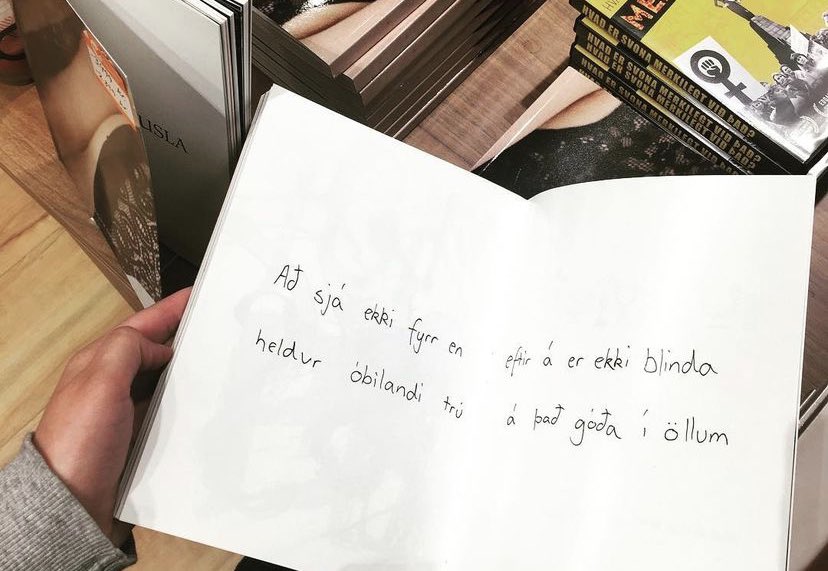 USLA
HVAÐ ER SVONA MERKILEGT VIÐ ÞAÐ?
HVAÐ ER SVONA MERKILEGT VIÐ ÞAÐ?
HVAÐ ER SVONA MERKILEGT VIÐ ÞAÐ?
Að sjá ekki fyrr en eftir á er ekki blinda
heldur óbilandi trú á það góða í öllum